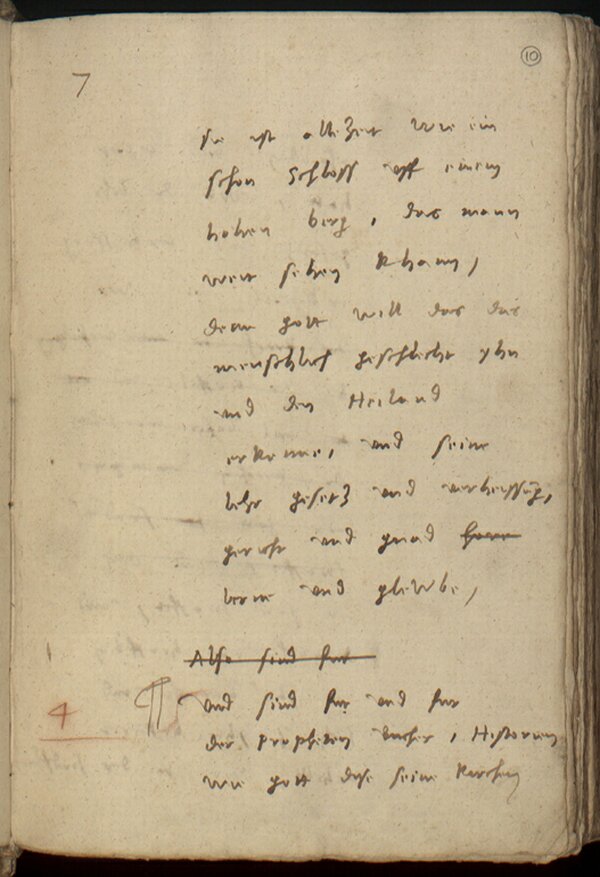 10
7
sie ist allezeit wie ein
schon Schloss vff einem
hohen berg, das mann
weit sehen khann,
denn gott will das das
menschlich geschlecht yhn
vnd den Heiland
erkenne, vnd seine
lehr gesetz vnd verheissung,
gericht vnd gnad hore
lerne vnd glewbe,
Also sind fur
4
¶ vnd sind fur vnd fur
der propheten bucher, Historien
wie gott dise seine kirchen